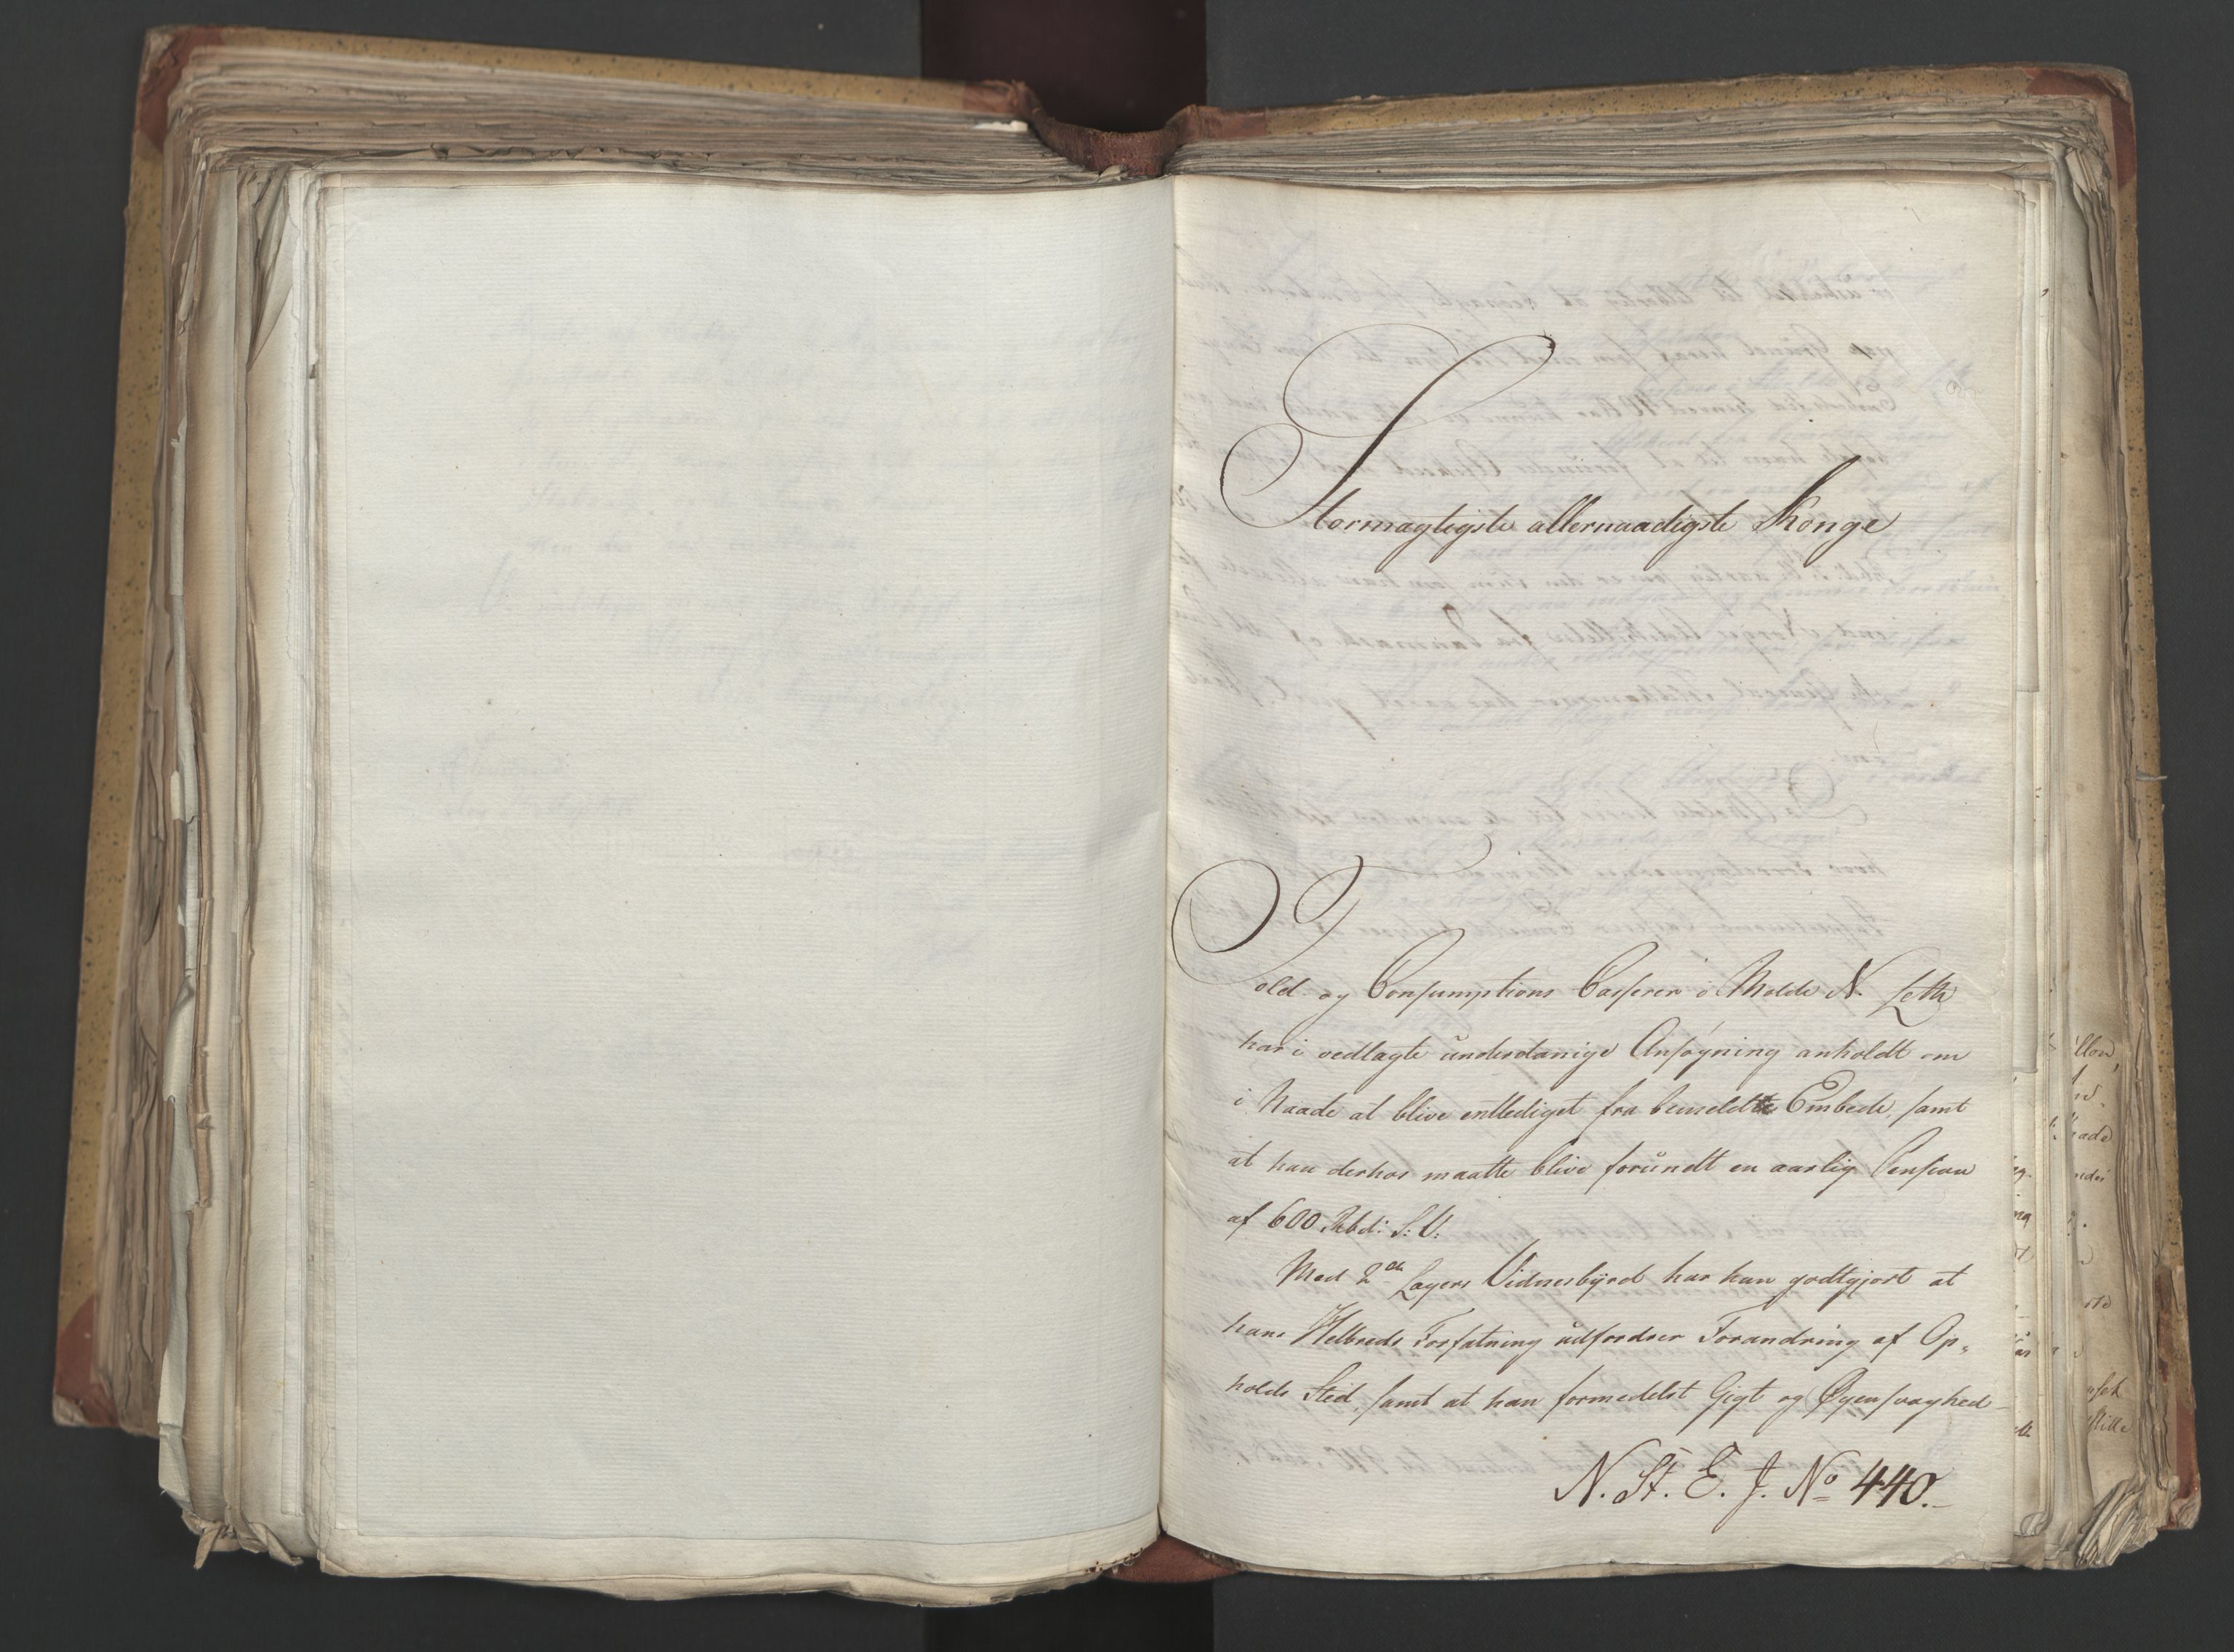 Stormagtigste allernaadigste Konge
Told- og Consumptions Casserer i Molde N. Leth
har i vedlagte underdanige Ansøgning anholdt om
i Naade at blive entlediget fra bemeldte Embede, samt
at han derhos maatte blive forundt en aarlig Pension
af 600 Rbd: S: V:
Med 2de Lægers Vidnesbyrd har han godtgjort at
hans Helbreds Forfatning udfordrer Forandring af Op-
holds Sted, samt at han formedelst Gigt og Øyensvaghed
N. St. E. J. No 440.